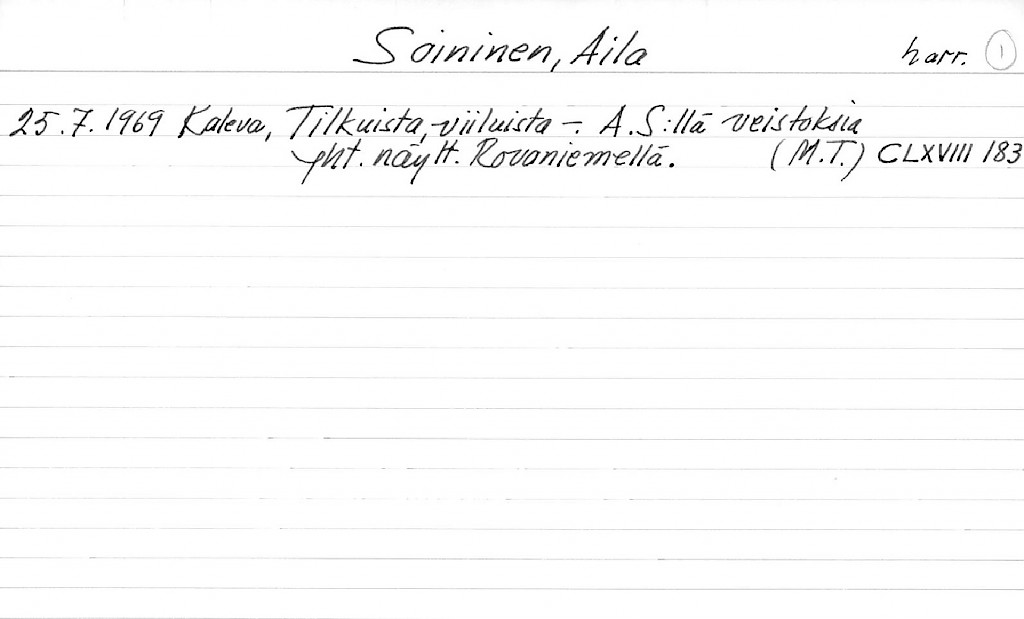 Soininen, Aila harr. 1
25.7.1969 Kaleva, Tilkuista, viiluista -. A.S:llä veistoksia
yht. näytt. Rovaniemellä. (M.T.) CLXVIII 183